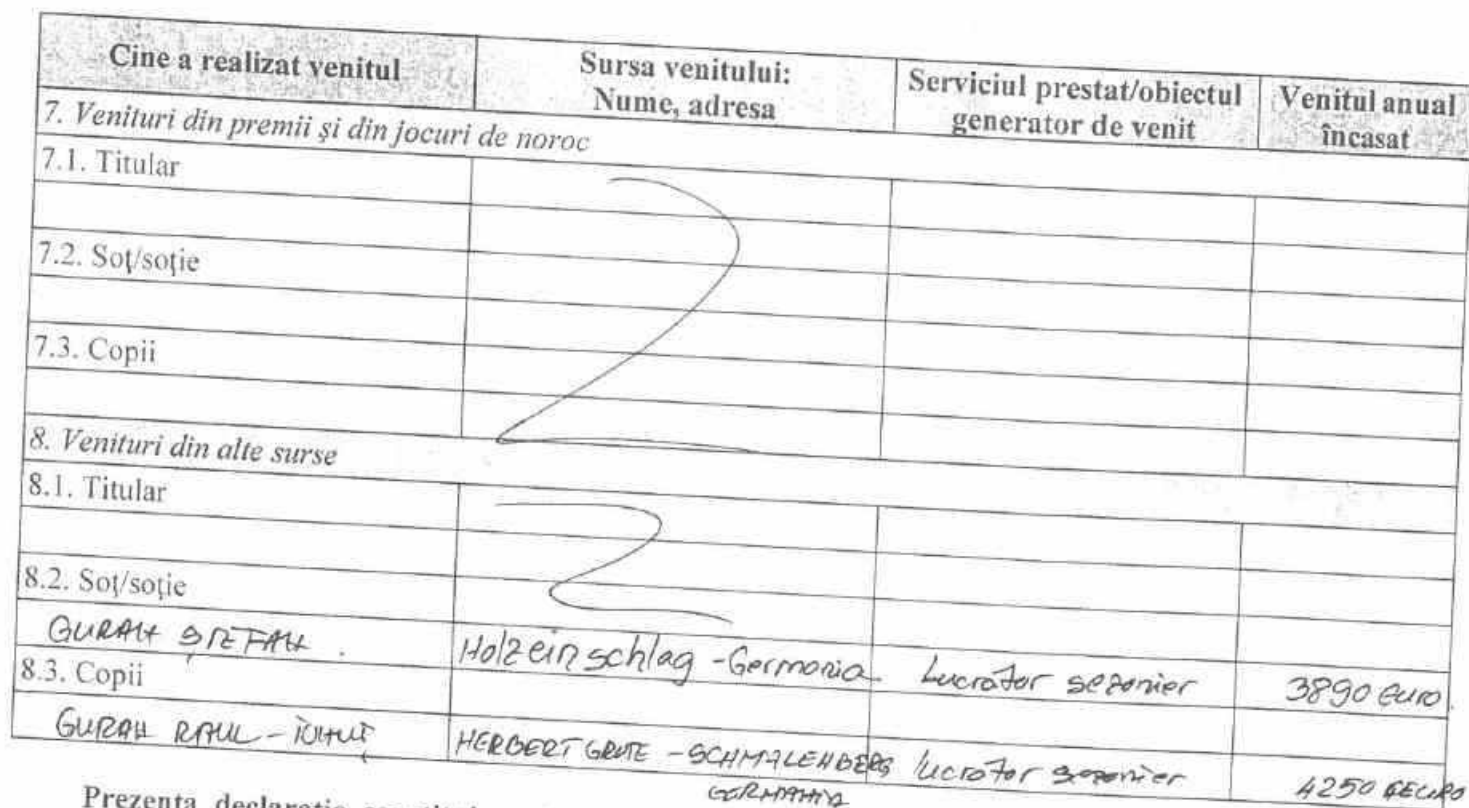 Cine a realizat venitul
Sursa venitului:
Nume, adresa
Serviciul prestat/obiectul
generator de venit
Venitul anual
încasat
7. Venituri din premii şi din jocuri de noroc
7.1. Titular
7.2. Soţ/soţie
7.3. Copii
8. Venituri din alte surse
8.1. Titular
8.2. Soţ/soţie
GURAN ȘTEFAN.
Holzeinschlag - Germania
Lucrător sezonier
3890 euro.
8.3. Copii
GURAN RAUL -
HERBERT GROTE - SCHMALENBERG
GERMANIA
lucrător sezonier
4250
Prezenta declaraţie